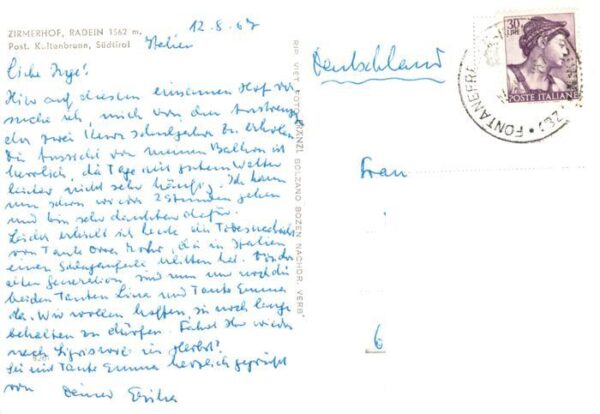 ZIRMERHOF, RADEIN 1562 m.
Post. Kaltenbrunn, Südtirol
12.8.67
Italien
Liebe Inge!
Hier auf diesem einsamen Hof ver-
suche ich, mich von den
der zwei zu erholen
Die Aussicht von meinem Balkon ist
herrlich, die Tage mit gutem Wetter
leider nicht sehr häufig. Ich kann
nun schon wieder 2 Stunden gehen
und bin sehr dankbar dafür.
Leider erhielt ich heute die Todesnachricht
von Tante die in Italien
einen erlitten hat. Von der
alten Generation sind nun nur noch die
beiden Tanten Lina und Tante Emma
da. Wir wollen hoffen, sie noch lange
behalten zu dürfen. Fahrt Ihr wieder
nach im Herbst?
Sei mit Tante Emma herzlich gegrüßt
von Deiner
RIP. VIET. FOTO GÄNZL BOLZANO BOZEN NACHDR. VERB.
Deutschland
30 LIRE
POSTE ITALIANE
FONTANEFRE
Frau
6